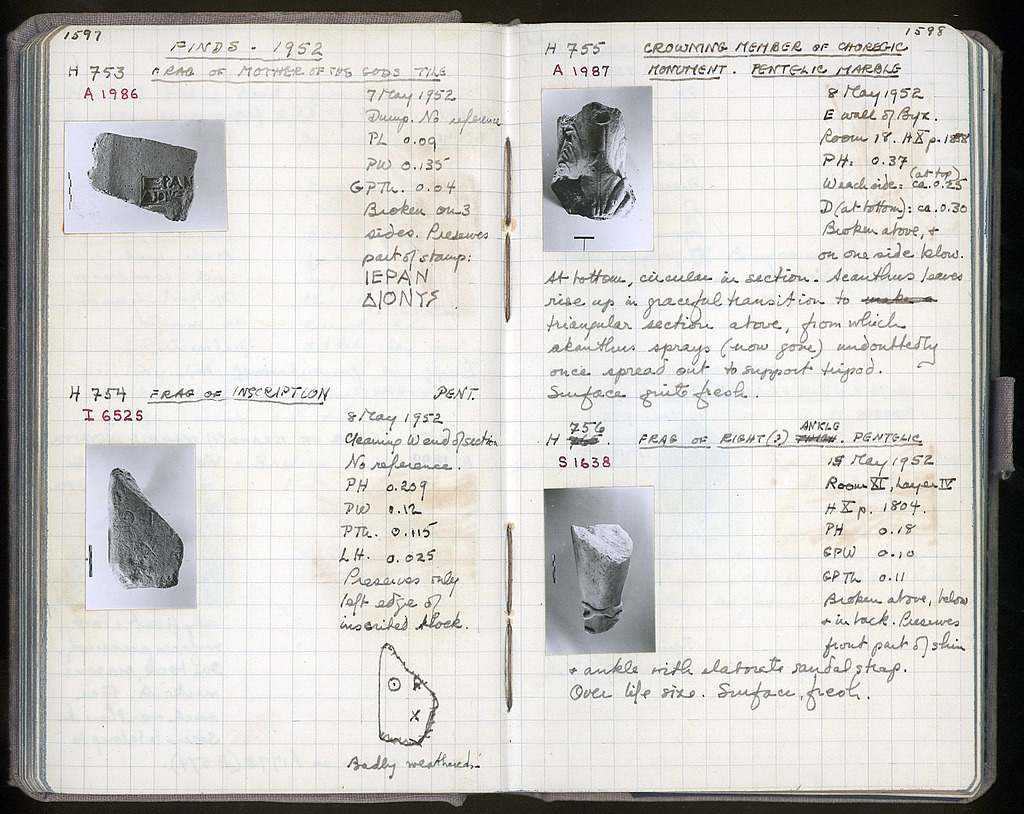 1597
FINDS - 1952
H 753 FRAG OF MOTHER OF THE GODS TILE
A 1986
7 May 1952
Dump. No reference
PL 0.09
PW 0.135
GPTh. 0.04
Broken on 3
sides. Preserves
part of stamp:
ΙΕΡΑΝ
ΔΙΟΝΥΣ
ΙΕΡΑΝ
ΔΙΟΝΥΣ
H 754 FRAG OF INSCRIPTION PENT.
I 6525
8 May 1952
Cleaning W end of section
No reference.
PH 0.209
PW 0.12
PTh. 0.115
LH. 0.025
Preserves only
left edge of
inscribed block.
Badly weathered.
1598
H 755 CROWNING MEMBER OF CHOREGIC
A 1987 MONUMENT. PENTELIC MARBLE
8 May 1952
E wall of Byz.
Room 18. H X p.
PH: 0.37
(at top)
W each side: ca. 0.25
D (at bottom): ca. 0.30
Broken above, +
on one side below.
At bottom, circular in section. Acanthus leaves
rise up in graceful transition to make a
triangular section above, from which
akanthus sprays (now gone) undoubtedly
once spread out to support tripod.
Surface quite fresh.
756
ANKLE
H 755. FRAG OF RIGHT(?) THIGH. PENTELIC
S 1638
15 May 1952
Room XI, Layer IV
H X p. 1804.
PH 0.18
GPW 0.10
GPTh 0.11
Broken above, below
+ in back. Preserves
front part of shin
+ ankle with elaborate sandal strap.
Over life size. Surface fresh.